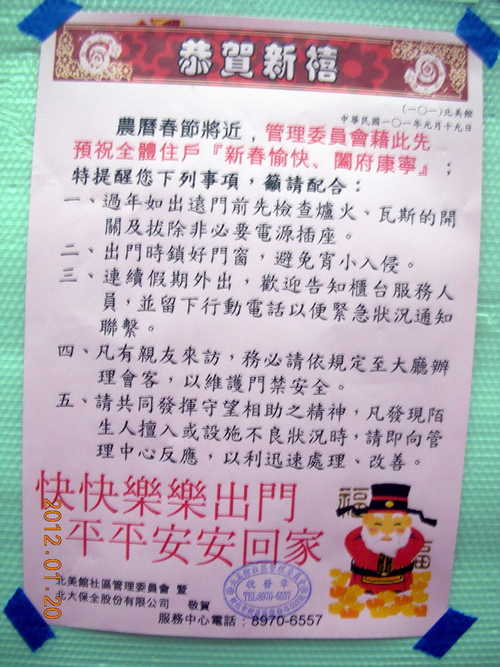 恭賀新禧
(一○一)北美館
中華民國一○一年元月十九日
農曆春節將近，管理委員會藉此先
預祝全體住戶『新春愉快、闔府康寧』；
特提醒您下列事項，籲請配合：
一、過年如出遠門前先檢查爐火、瓦斯的開
關及拔除非必要電源插座。
二、出門時鎖好門窗，避免宵小入侵。
三、連續假期外出，歡迎告知櫃台服務人
員，並留下行動電話以便緊急狀況通知
聯繫。
四、凡有親友來訪，務必請依規定至大廳辦
理會客，以維護門禁安全。
五、請共同發揮守望相助之精神，凡發現陌
生人擅入或設施不良狀況時，請即向管
理中心反應，以利迅速處理、改善。
快快樂樂出門
平平安安回家
福
福
北美館社區管理委員會 暨
北大保全股份有限公司 敬賀
收發章
TEL:8970-6557
服務中心電話：8970-6557
2012.01.20